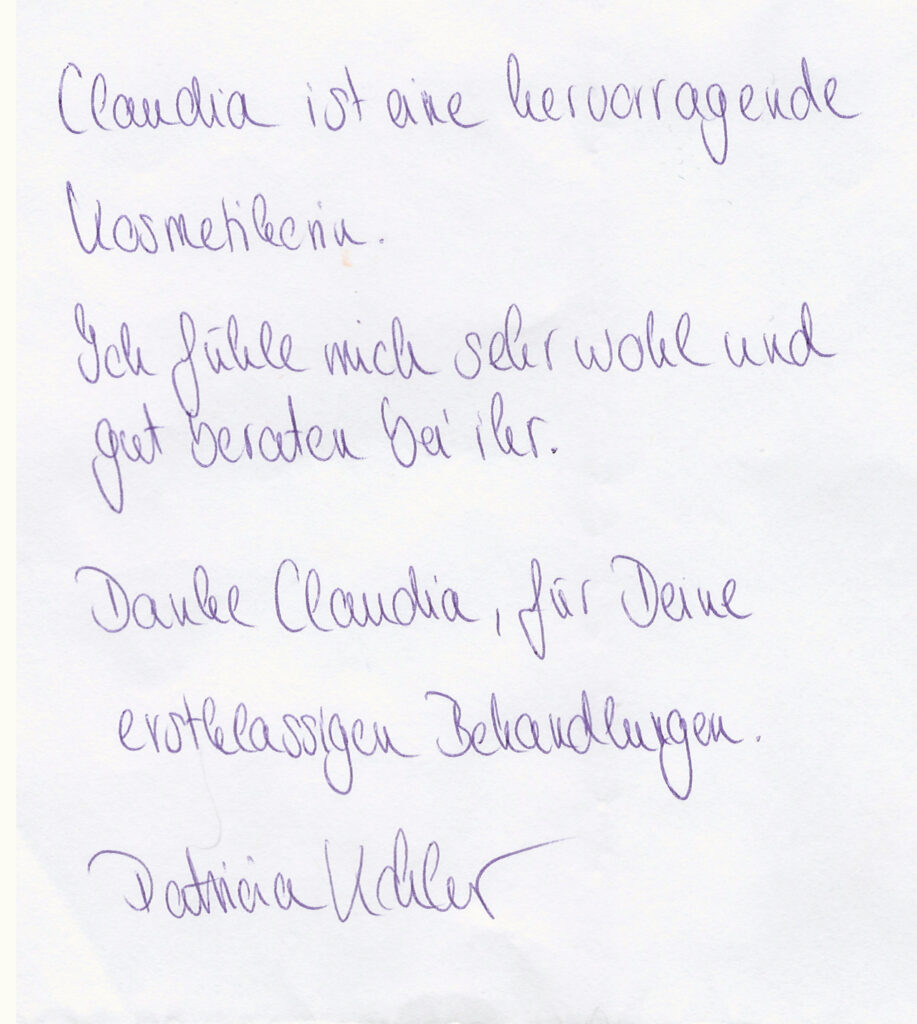 Claudia ist eine hervorragende
Kosmetikerin.
Ich fühle mich sehr wohl und
gut beraten bei ihr.
Danke Claudia, für Deine
erstklassigen Behandlungen.
Patricia